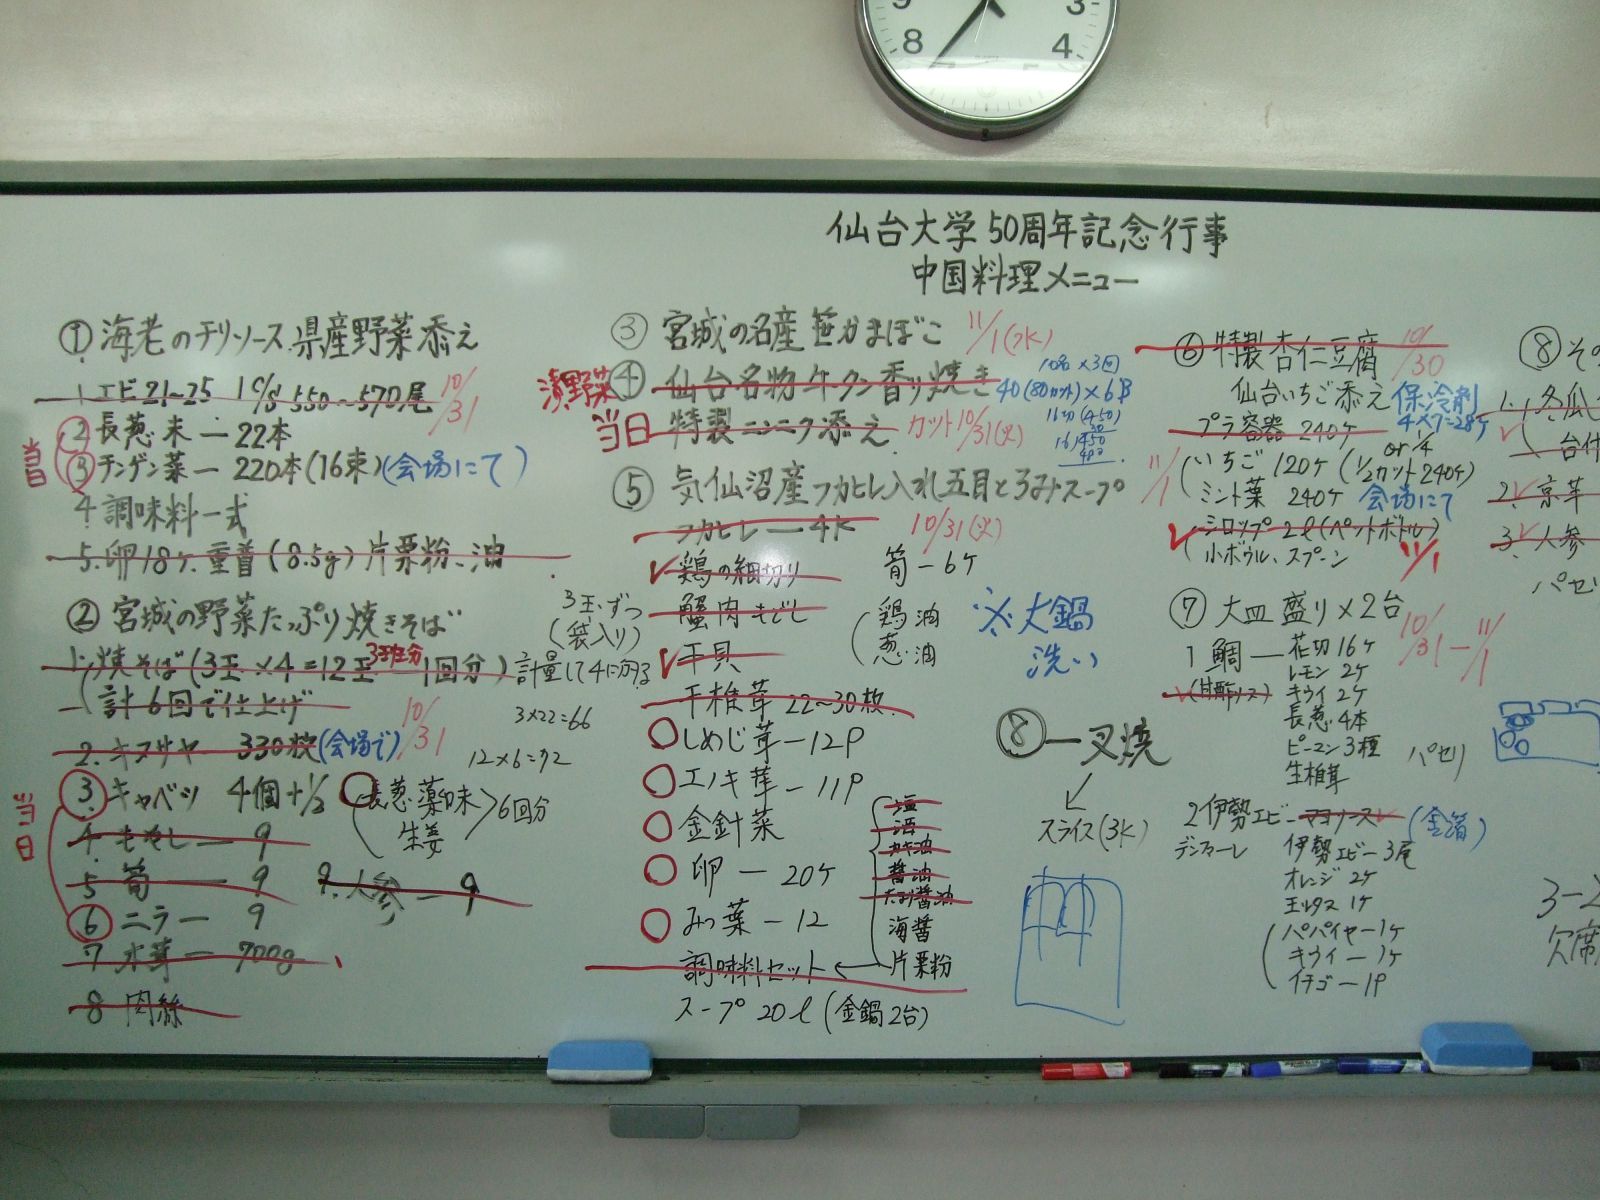 8
3
4
仙台大学50周年記念行事
中国料理メニュー
①海老のチリソース県産野菜添え
1エビ21~25 1c/s 550~570尾
10/31
当日
②長葱末―22本
③チンゲン菜―220本(16束)(会場にて)
4調味料一式
5.卵18ヶ.重曹(8.5g)片栗粉、油
②宮城の野菜たっぷり焼きそば
3玉ずつ
(袋入り)
1.焼そば(3玉×4=12玉 1回分)
計量して4に分る
計6回で仕上げ
10/31
3×22=66
2.キヌサヤ 330枚(会場で)
12×6=72
当日
③キャベツ 4個+1/2
長葱 薬味
生姜
6回分
4 もやし―9
5 筍―9
9.人参―9
⑥ニラ―9
7 木茸―700g
8 肉絲
③宮城の名産笹かまぼこ
11/1(2K)
漬野菜
④仙台名物牛タン香り焼き
10名×3回
40(80カット)×6B
当日
特製ニンニク添え
カット10/31(火)
16切(450)
⑤気仙沼産フカヒレ入れ五目とろみスープ
フカヒレ―4K
10/31(火)
鶏の細切り
筍―6ヶ
蟹肉もどし
鶏油
葱油
干貝
干椎茸22~30枚
しめじ茸―12P
エノキ茸―11P
金針菜
卵―20ヶ
みつ葉―12
調味料セット
塩
酒
カキ油
醤油
たまり醤油
海醤
片栗粉
スープ20ℓ(金鍋2台)
※大鍋
洗い
⑧―叉焼
スライス(3K)
⑥特製杏仁豆腐
10/30
仙台いちご添え
保冷剤
4×7=28ヶ
プラ容器 240ヶ
or 1/4
11/1
いちご120ヶ(1/2カット240ヶ)
ミント葉 240ヶ 会場にて
シロップ2ℓ(ペットボトル)
小ボウル、スプーン
11/1
⑦大皿盛り×2台
10/31―11/1
1鯛―花切16ヶ
レモン2ヶ
(甘酢ソース)
キウイ2ヶ
長葱4本
ピーマン3種
パセリ
生椎茸
2伊勢エビ―マヨソース
(金箔)
伊勢エビ―3尾
オレンジ2ヶ
パパイヤー1ヶ
キウイー1ヶ
イチゴー1P
⑧その
1.冬瓜
台付
2.京芋
3.人参
パセ
欠席